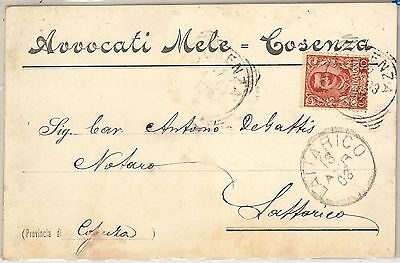 Avvocati Mele = Cosenza
COSENZA
Sig. Cav. Antonio DeGattis
Notaro
LATTARICO
Lattarico
(Provincia di Cosenza)